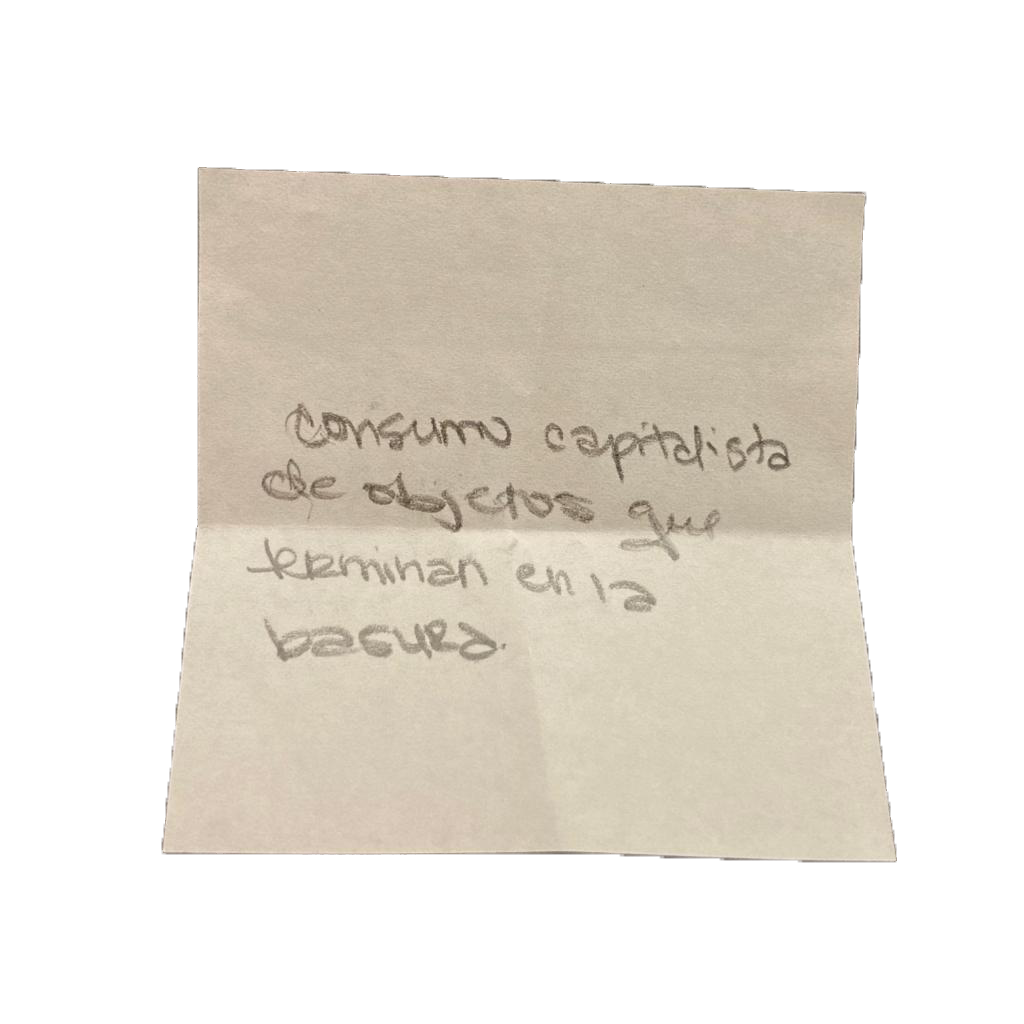 consumo capitalista
de objetos que
terminan en la
basura.